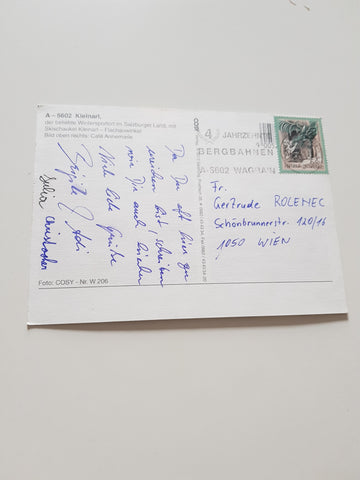 A – 5602 Kleinarl,
der beliebte Wintersportort im Salzburger Land, mit
Skischaukel Kleinarl – Flachauwinkel
Bild oben rechts: Café Annemarie
Da Du oft hier zu
wir Dir auch
Viele liebe Grüße
Brigitte & Adi
Julia Christopher
Foto: COSY - Nr. W 206
COSY
4 JAHRZEHNTE
BERGBAHNEN
A-5602 WAGRAIN
Fr.
Gertrude ROLENEC
Schönbrunnerstr. 120/16
1050 WIEN